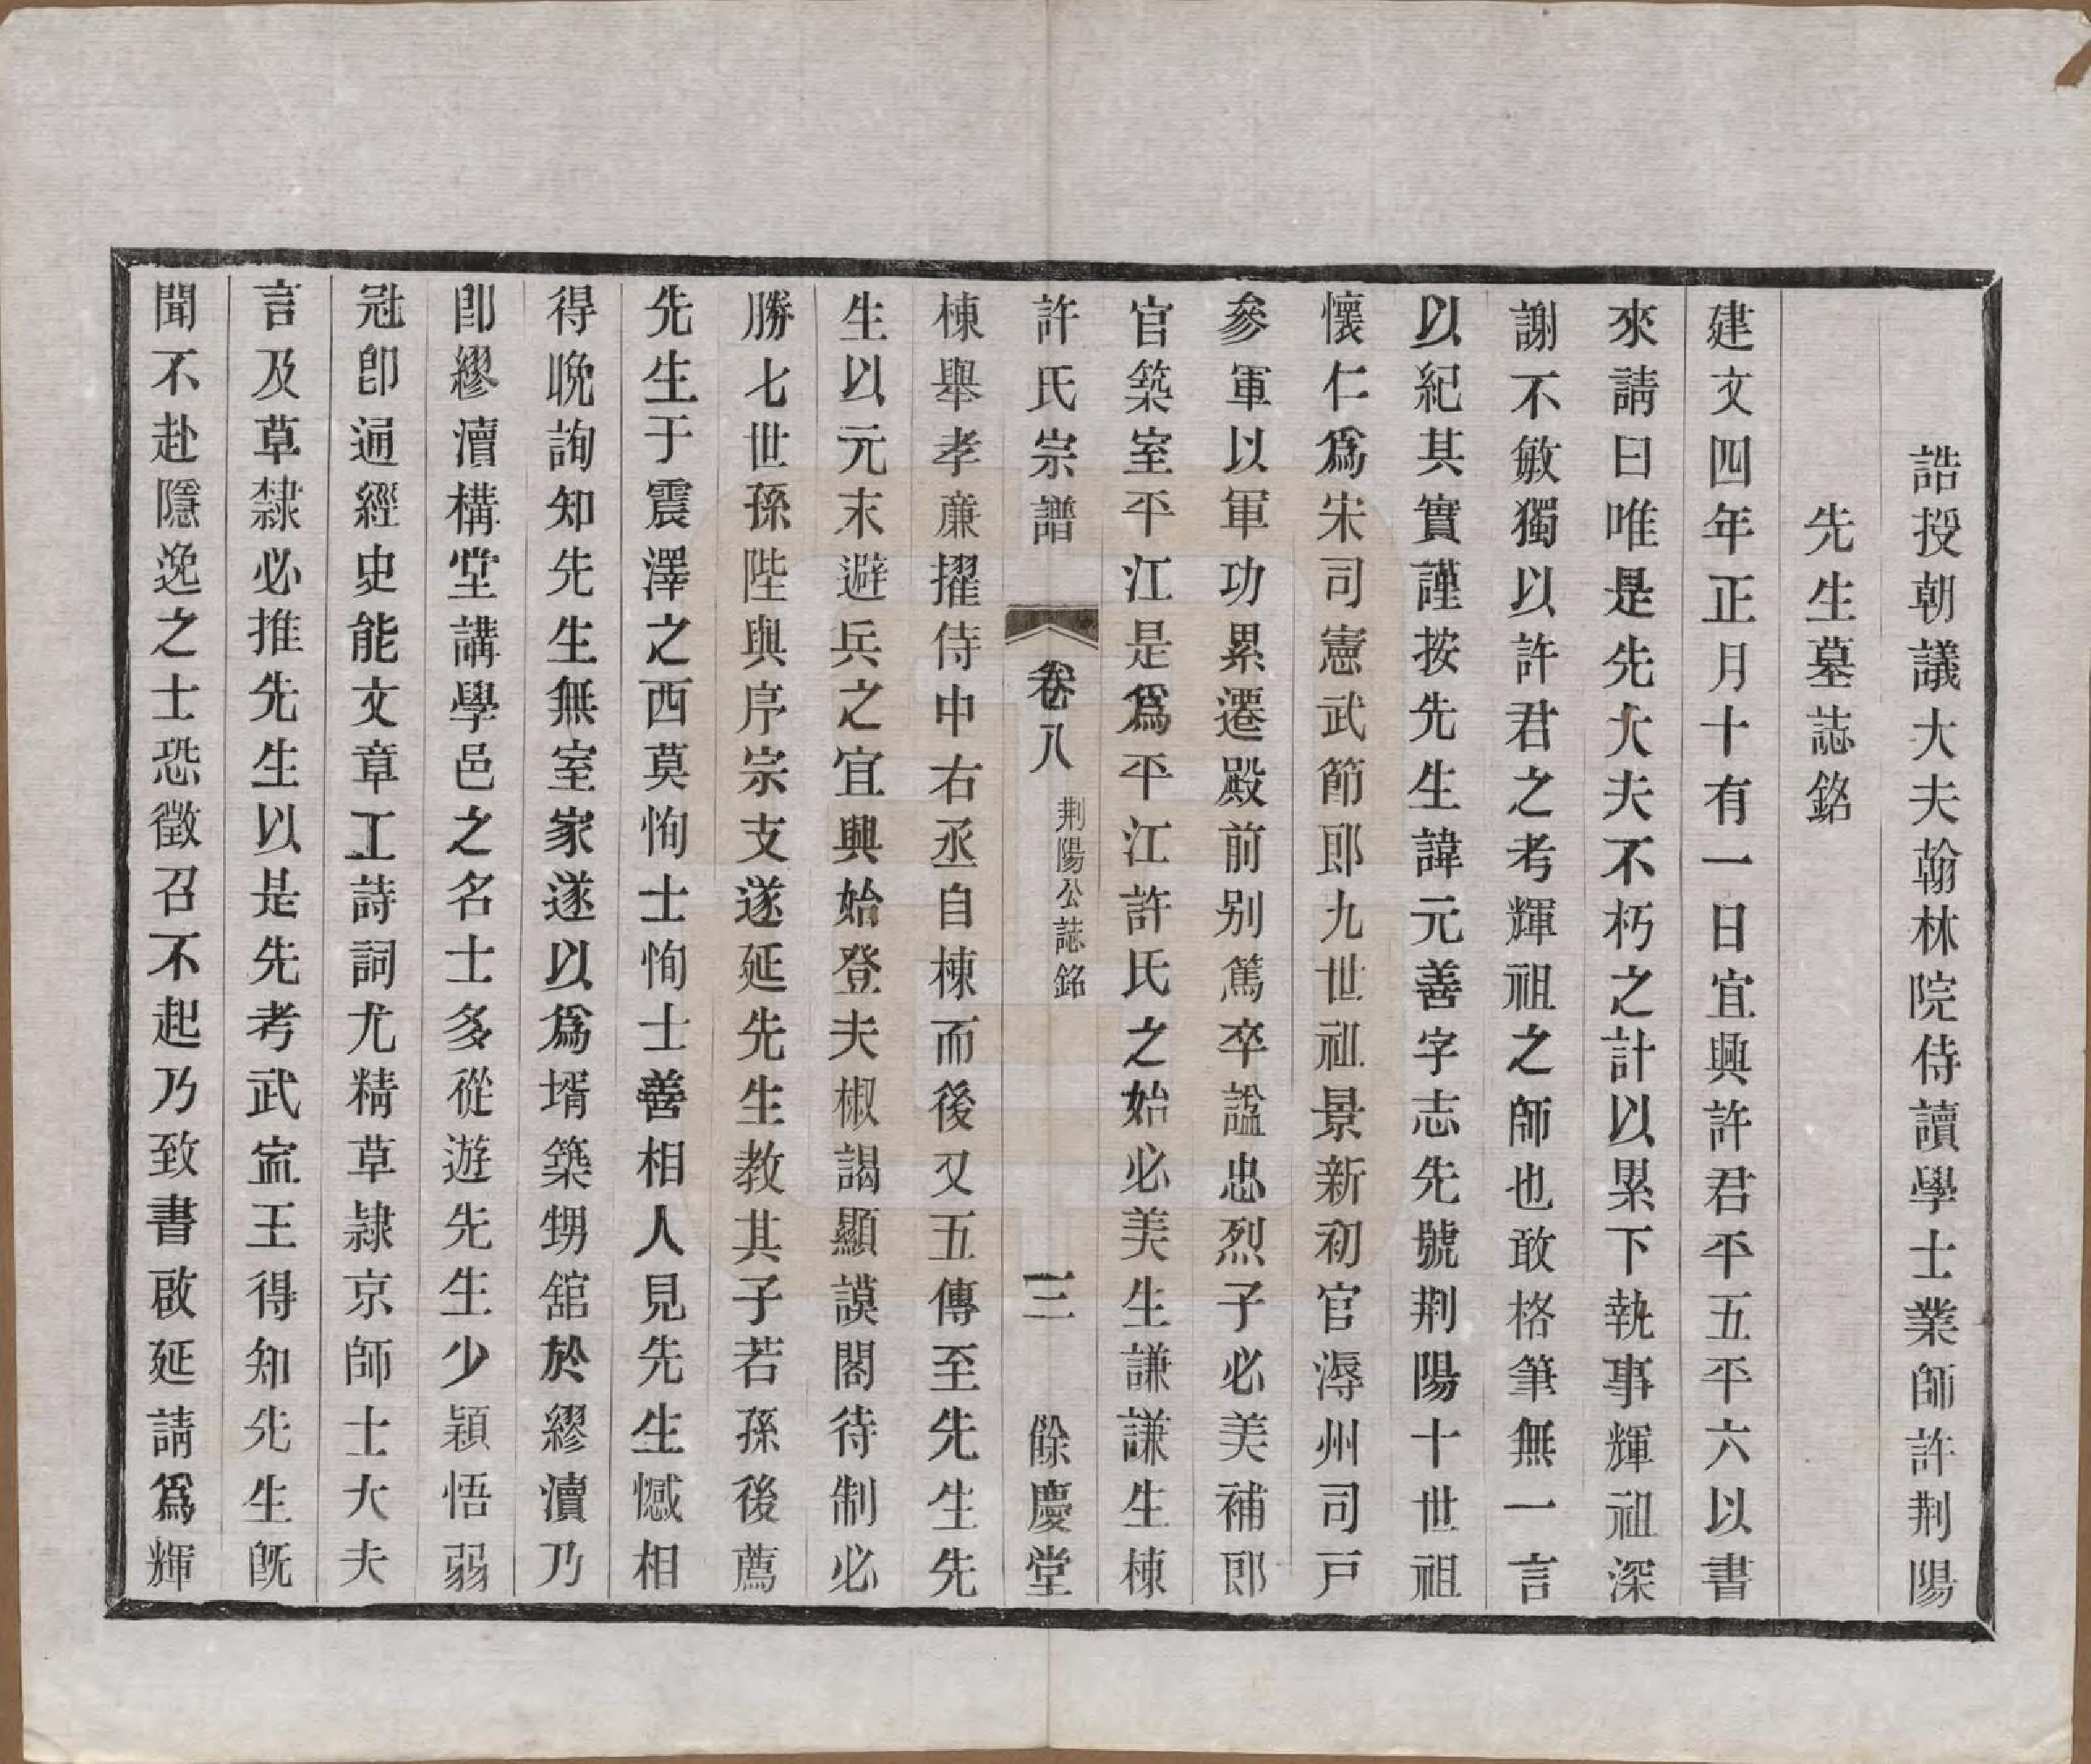 誥授朝議大夫翰林院侍讀學士業師許荆陽
先生墓誌銘
建文四年正月十有一日宜興許君平五平六以書
來請曰唯是先大夫不朽之計以累下執事輝祖深
謝不敏獨以許君之考輝祖之師也敢格筆無一言
以紀其實謹按先生諱元善字志先號荆陽十世祖
懷仁爲宋司憲武節郎九世祖景新初官溽州司戸
參軍以軍功累遷殿前别篤卒諡忠烈子必美補郎
官築室平江是爲平江許氏之始必美生謙謙生棟
許氏宗譜 卷八 荆陽公誌銘 三 餘慶堂
棟舉孝廉擢侍中右丞自棟而後又五傳至先生先
生以元末避兵之宜興始登夫椒謁顯謨閣待制必
勝七世孫陛與序宗支遂延先生教其子若孫後薦
先生于震澤之西莫恂士恂士善相人見先生憾相
得晚詢知先生無室家遂以爲壻築甥舘於繆瀆乃
卽繆瀆構堂講學邑之名士多從遊先生少穎悟弱
冠卽通經史能文章工詩詞尤精草隷京師士大夫
言及草隸必推先生以是先考武寍王得知先生旣
聞不赴隱逸之士恐徵召不起乃致書啟延請爲輝